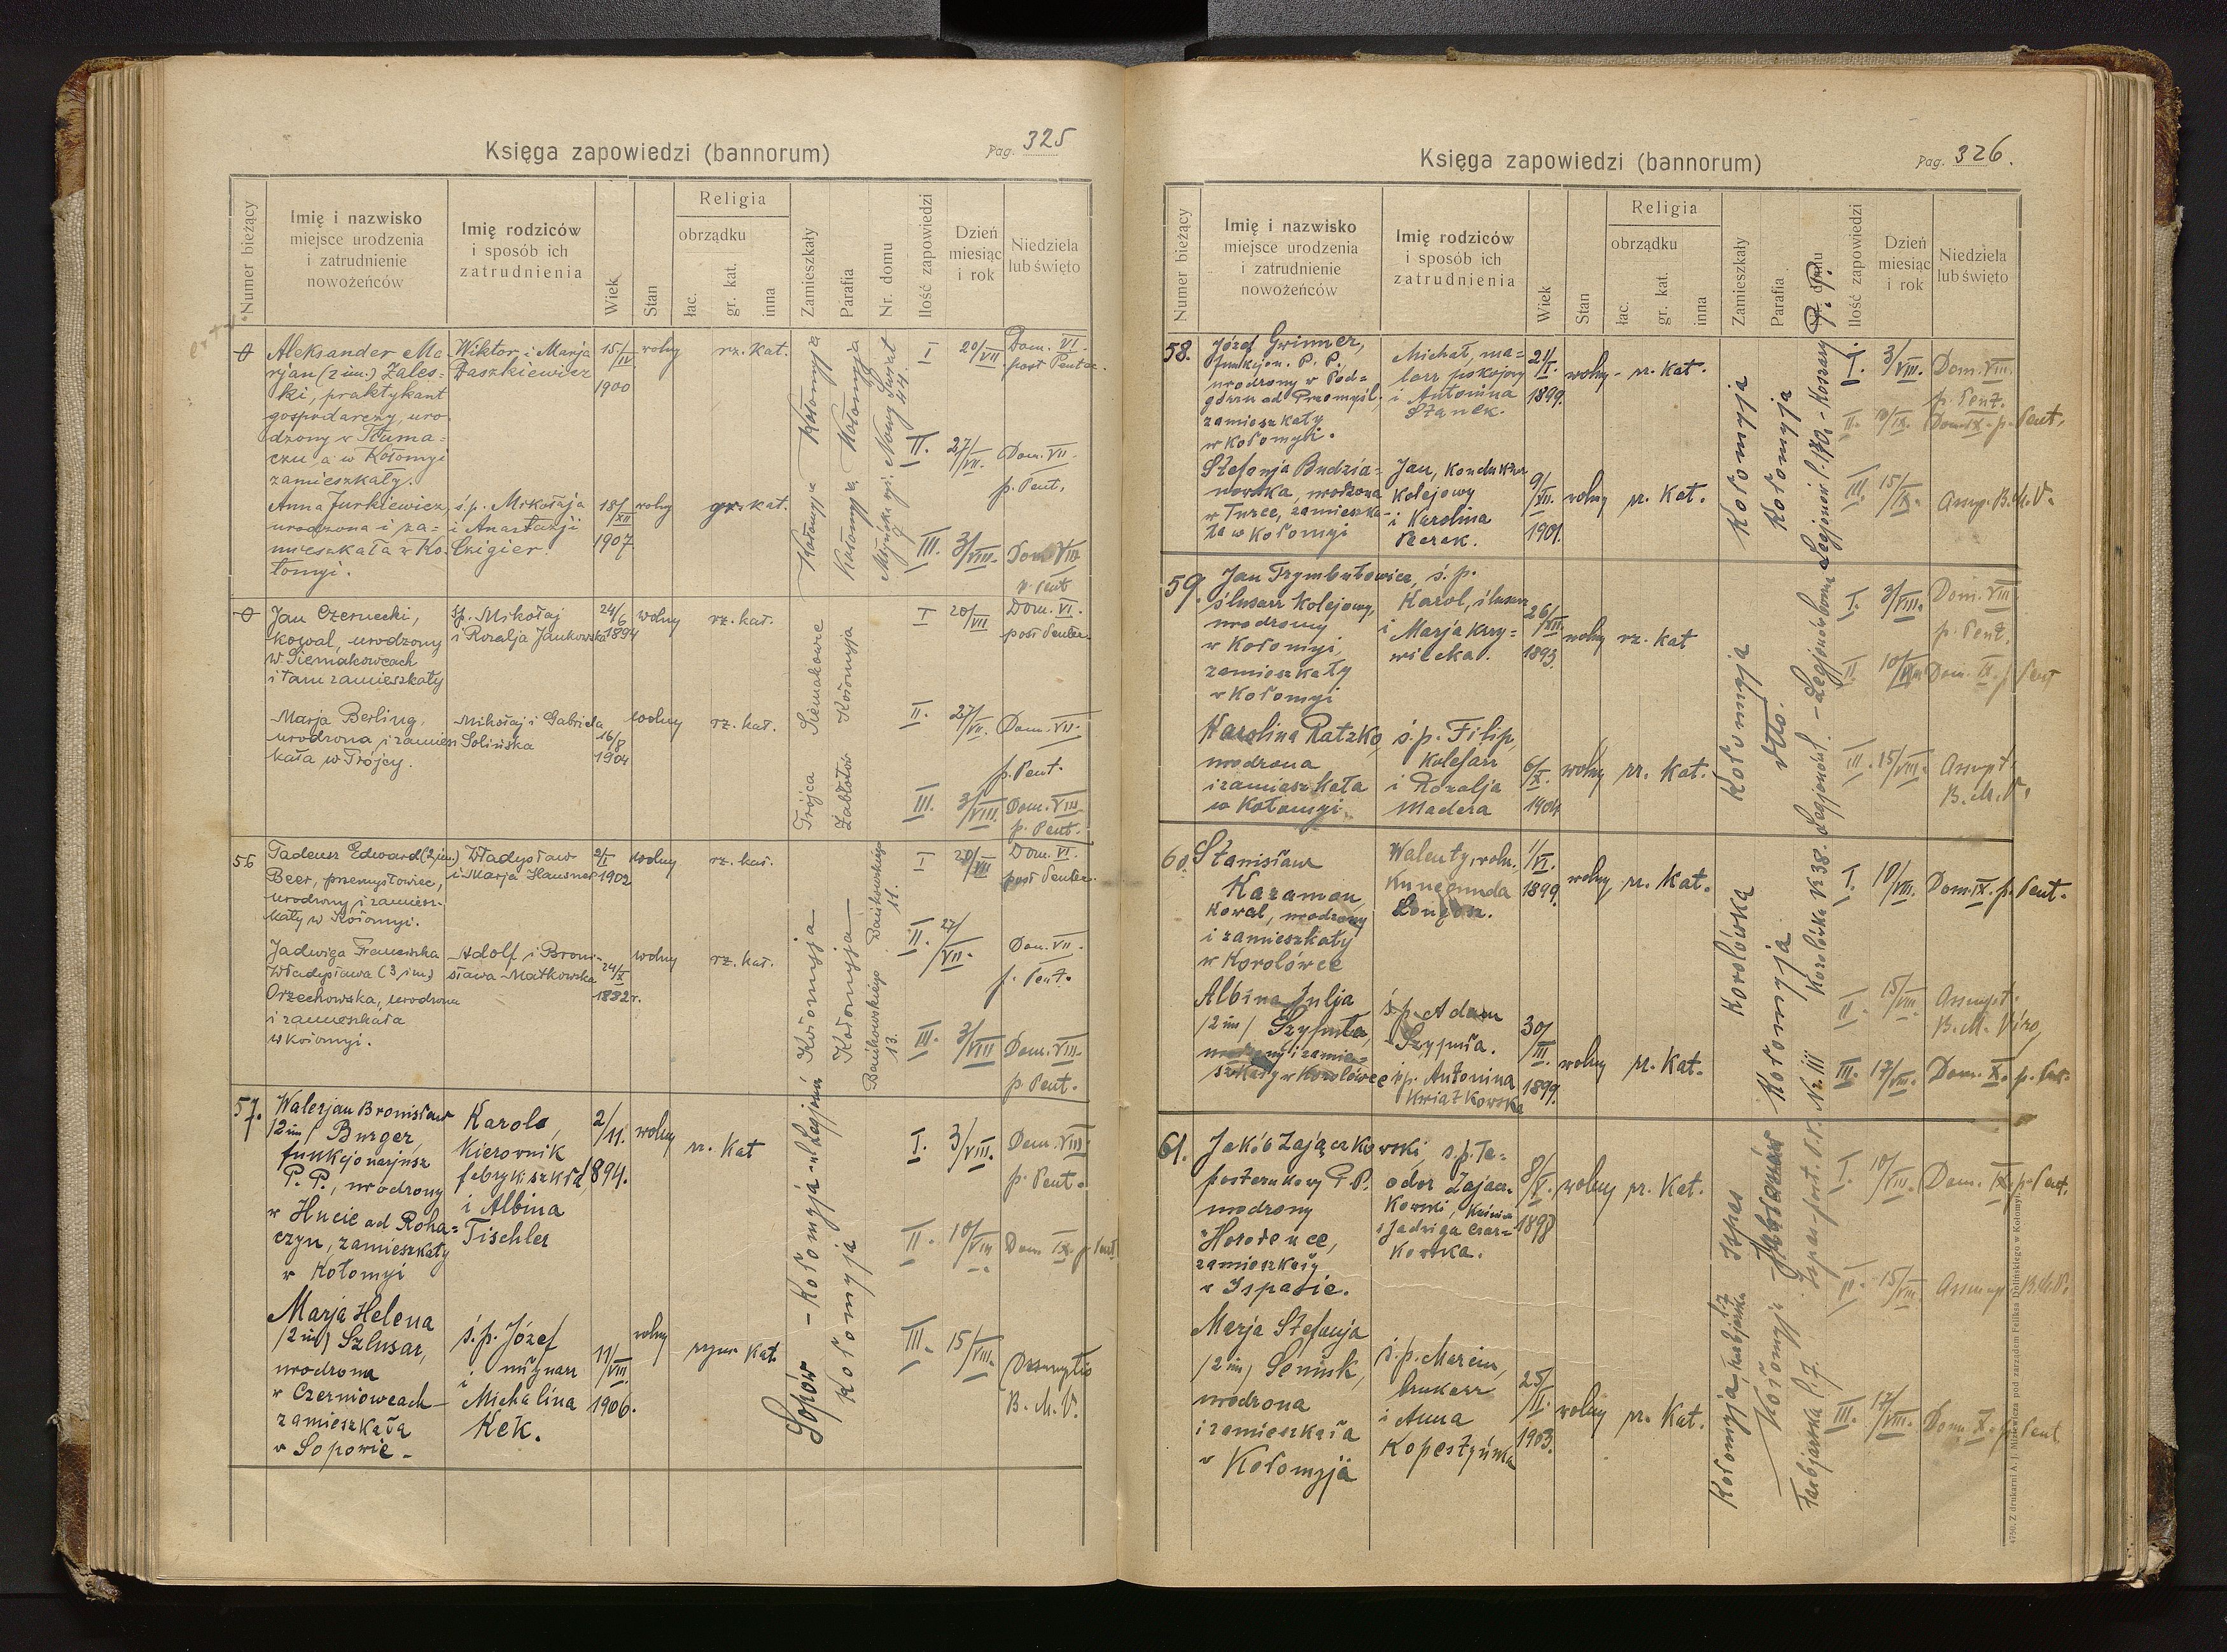 Księga zapowiedzi (bannorum)
Pag. 325
Numer bieżący
Imię i nazwisko
miejsce urodzenia
i zatrudnienie
nowożeńców
Imię rodziców
i sposób ich
zatrudnienia
Wiek
Stan
Religia
obrządku
łac.
gr. kat.
inna
Zamieszkały
Parafia
Nr. domu
Ilość zapowiedzi
Dzień
miesiąc
i rok
Niedziela
lub święto
Aleksander Ma-
rjan (2 im.) Zales-
ki, praktykant
gospodarczy, uro-
dzony w Tłuma-
czu, a w Kołomyi
zamieszkały.
Wiktor i Marja
Daszkiewicz
15/IV
1900
wolny
rz. kat.
Anna Jurkiewicz,
urodzona i za-
mieszkała w Ko-
łomyi.
ś.p. Mikołaja
i Anastazji
Czigier.
18/XII
1907
wolny
gr. kat.
Kołomyja Kołomyja
Kołomyja Kołomyja
Nowy Świat
44.
I 20/VII Dom. VI.
post Pentec.
II. 27/VII. Dom. VII.
p. Pent.
III. 3/VIII. Dom VIII
p. Pent
Jan Czernecki,
kowal, urodzony
w Siemakowcach
i tam zamieszkały
śp. Mikołaj
i Rozalja Jankowska
24/6
1894
wolny
rz. kat.
Marja Berling,
urodzona i zamiesz-
kała w Trójcy.
Mikołaj i Gabriela
Solińska
16/8
1904
wolny
rz. kat.
Trójca Siemakowce
Zabłotów Kołomyja
I 20/VII Dom. VI.
post Pentec.
II. 27/VII. Dom. VII.
p. Pent.
III. 3/VIII. Dom. VIII
p. Pent.
56
Tadeusz Edward (2 im.)
Beer, przemysłowiec,
urodzony i zamiesz-
kały w Kołomyi.
Władysław
i Marja Hausner
2/I
1902
wolny
rz. kat.
Jadwiga Franciszka
Władysława (3 im)
Orzechowska, urodzona
i zamieszkała
w Kołomyi.
Adolf i Broni-
sława Matkowska
24/X
wolny
rz. kat.
Kołomyja
Kołomyja
13.
11.
I 20/VII Dom. VI.
post Pentec.
II. 27/VII. Dom. VII.
p. Pent.
III. 3/VIII Dom. VIII.
p. Pent.
57.
Walerjan Bronisław
/2 im/ Burger,
funkcjonarjusz
P. P., urodzony
w Hucie ad Roha-
czyn, zamieszkały
w Kołomyi
Karola,
kierownik
fabryki szkła
i Albina
Tischler
2/11.
1894.
wolny
rz. kat
Marja Helena
/2 im/ Szlusar,
urodzona
w Czerniowcach
zamieszkała
w Sopowie.
ś. p. Józef
młynarz
i
Michalina
Kek.
11/VIII.
1906.
wolny
rzym kat
Sopów - Kołomyja
Kołomyja
I. 3/VIII. Dom. VIII
p. Pent.
II. 10/VIII Dom IX. p. Pent
III. 15/VIII.
B. M. V.
Księga zapowiedzi (bannorum)
Pag. 326.
Numer bieżący
Imię i nazwisko
miejsce urodzenia
i zatrudnienie
nowożeńców
Imię rodziców
i sposób ich
zatrudnienia
Wiek
Stan
Religia
obrządku
łac.
gr. kat.
inna
Zamieszkały
Parafia
Ilość zapowiedzi
Dzień
miesiąc
i rok
Niedziela
lub święto
58.
Józef Grimmer,
funkcjon. P. P.
urodzony w Pod-
górzu ad Przemyśl,
zamieszkały
w Kołomyi.
Michał, ma-
larz pokojowy
i Antonina
Stanek.
21/I.
1899.
wolny
rz. kat.
Stefanja Budzia-
nowska, urodzona
w Turce, zamieszka-
ła w Kołomyi
Jan, konduktor
kolejowy
i Karolina
Berek.
9/VII.
1901.
wolny
rz. kat.
Kołomyja
Kołomyja
I. 3/VIII. Dom. VIII.
p. Pent.
II. Dom. IX. p. Pent.
III. Assup. B.M.V.
59.
Jan Trymbułowicz, ś. p.
ślusarz kolejowy,
urodzony
w Kołomyi,
zamieszkały
w Kołomyi
Karol, ślusarz
i Marja Krzy-
wilcka.
26/XII.
1893.
wolny
rz. kat
Karolina Ratzko,
urodzona
i zamieszkała
w Kołomyi.
ś. p. Filip,
kolejarz
i Rozalja
Madera
6/X.
1904
wolny
rz. kat.
Kołomyja
dtto.
I. 3/VIII. Dom. VIII
p. Pent.
II. Dom. IX. p. Pent
III. 15/VIII.
B. M. V.
60.
Stanisław
Karaman,
kowal, urodzony
i zamieszkały
w Korolówce
Walenty, roln.,
Kunegunda
1/VI.
1899.
wolny
rz. kat.
Albina Julja
/2 im/ Szypuła,
ś. p. Adam
Szypuła.
ś. p. Antonina
Kwiatkowska
30/III.
1899.
wolny
rz. kat.
Korolówka
Kołomyja
Korolówka Nr 38.
I. 10/VIII. Dom. IX. p. Pent.
II. 15/VIII.
III. 17/VIII. Dom. X. p. Pent.
61.
Jakób Zajączkowski, ś. p. Te-
posterunkowy P. P.
urodzony
w Horodence,
zamieszkały
w Ispasie.
odor Zającz-
kowski,
i Jadwiga Czar-
kowska.
8/V.
1898
wolny
rz. kat.
Marja Stefanja
/2 im/ Semiuk,
urodzona
i zamieszkała
w Kołomyjä
ś. p. Marcin,
brukarz
i Anna
25/II.
1903.
wolny
rz. kat.
Kołomyja Ispas
Kołomyja
I. 10/VIII. Dom. IX. p. Pent.
II. 15/VIII B.M.V.
III. 17/VIII. Dom. X. p. Pent
4750. Z drukarni A. J. Miziewicza pod zarządem Feliksa Dolińskiego w Kołomyi.